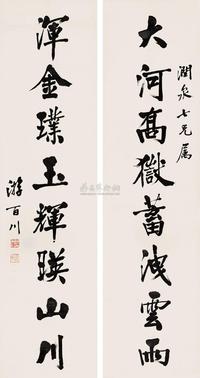 潤泉七兄属
大河高嶽蓄洩雲雨
渾金璞玉輝暎山川
游百川